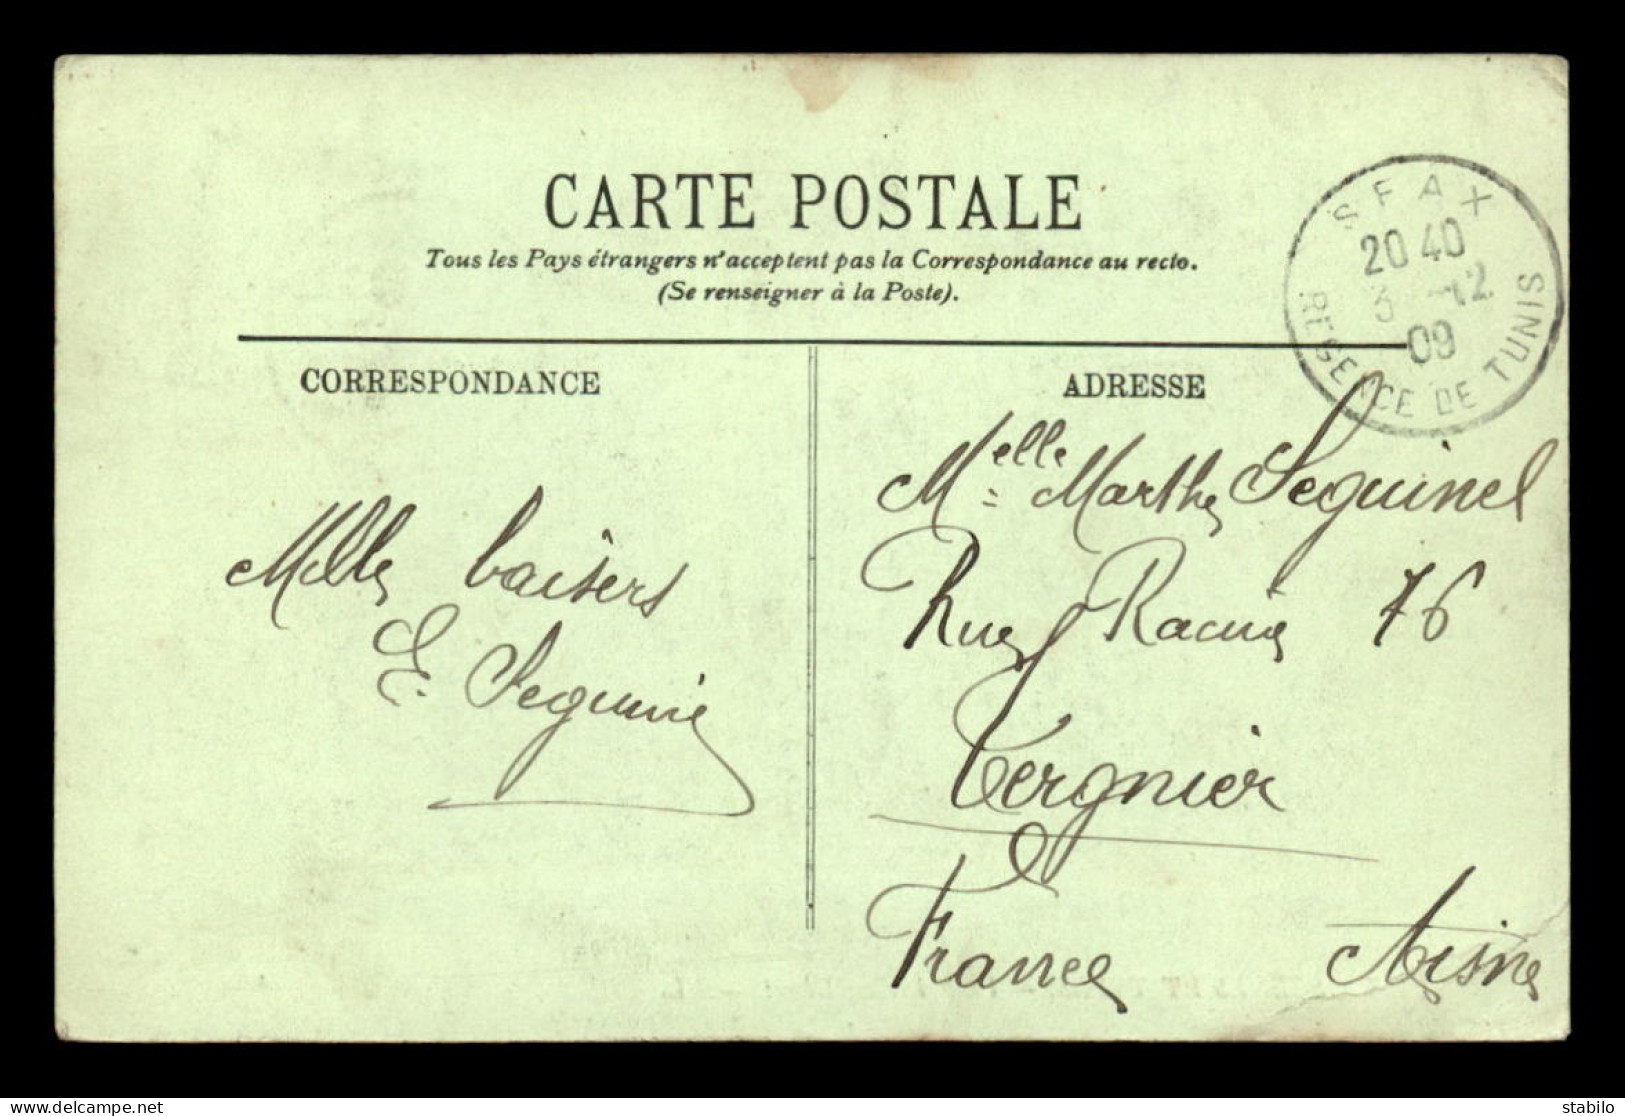 CARTE POSTALE
Tous les Pays étrangers n'acceptent pas la Correspondance au recto.
(Se renseigner à la Poste).
SFAX
20 40
3 -12
09
REGENCE DE TUNIS
CORRESPONDANCE
ADRESSE
Mille baisers
E. Seguinel
Melle Marthe Seguinel
Rue Racine 76
Tergnier
France Aisne
stabilo